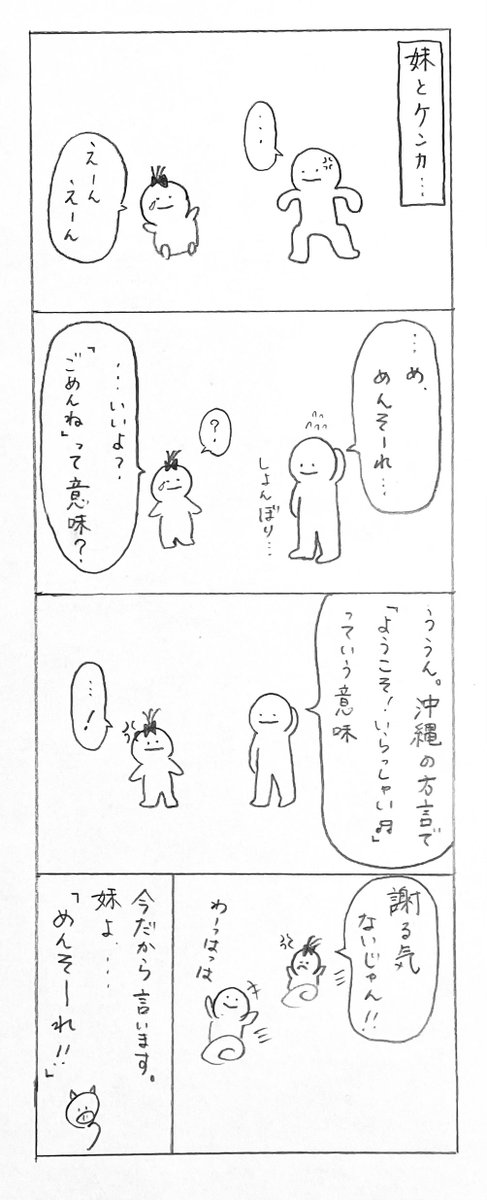 妹とケンカ…
…
えーん
えーん
…め、
めんそーれ…
しょんぼり…
?
…いいよ?
「ごめんね」って意味?
ううん。沖縄の方言で
「ようこそ!いらっしゃい♬」
っていう意味
…!
謝る気
ないじゃん!!
わーっはっは
今だから言います。
妹よ…
「めんそーれ!!」